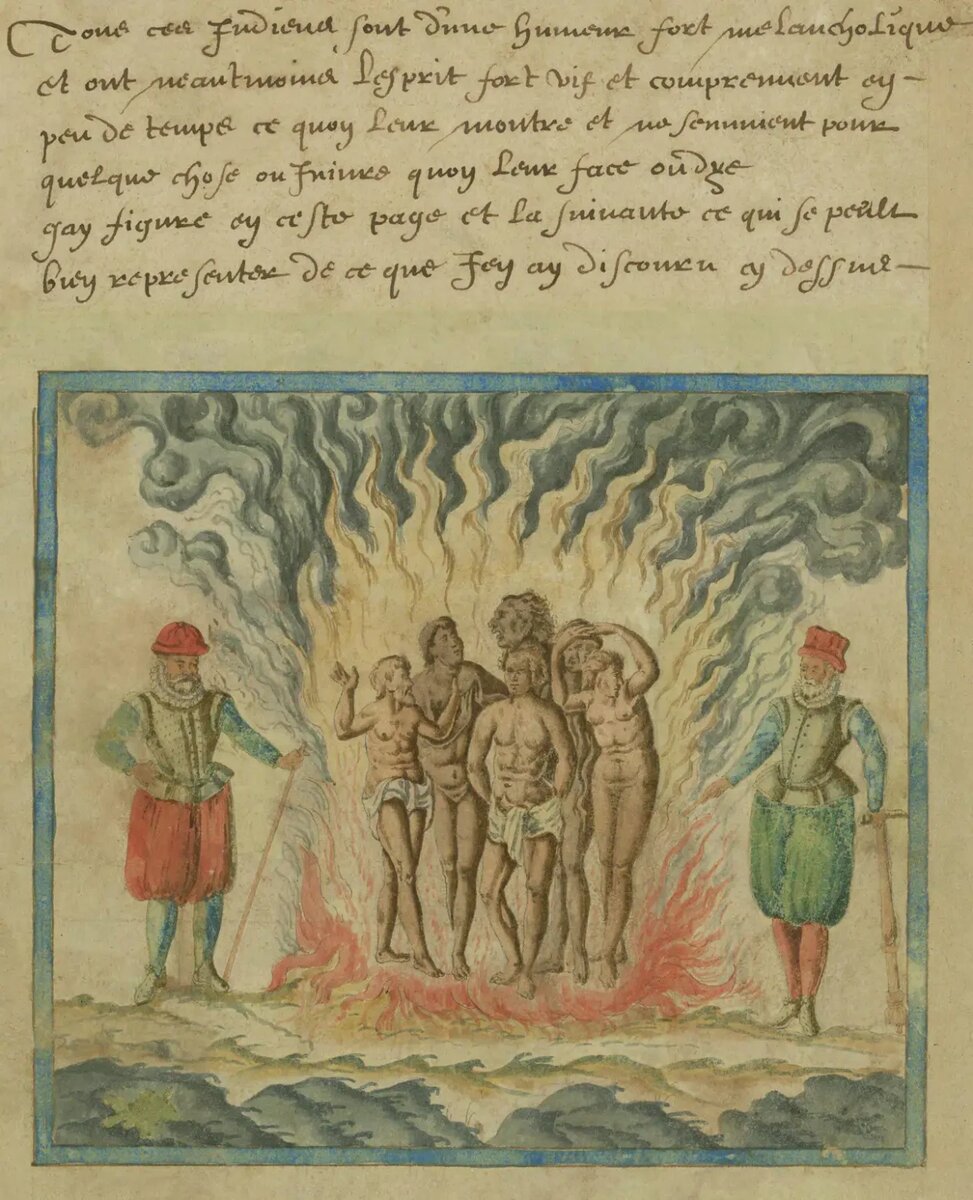 Tous ces Indiens sont d'une humeur fort melancholique
et ont neautmoins lesprit fort vif et comprennent en
peu de temps ce quon leur monstre et ne sennuient pour
quelque chose ou Iniure quon leur face ou dye
Jay figuré en ceste page et la suivante ce qui se peult
bien representer de ce que Jen ay discouru cy dessus